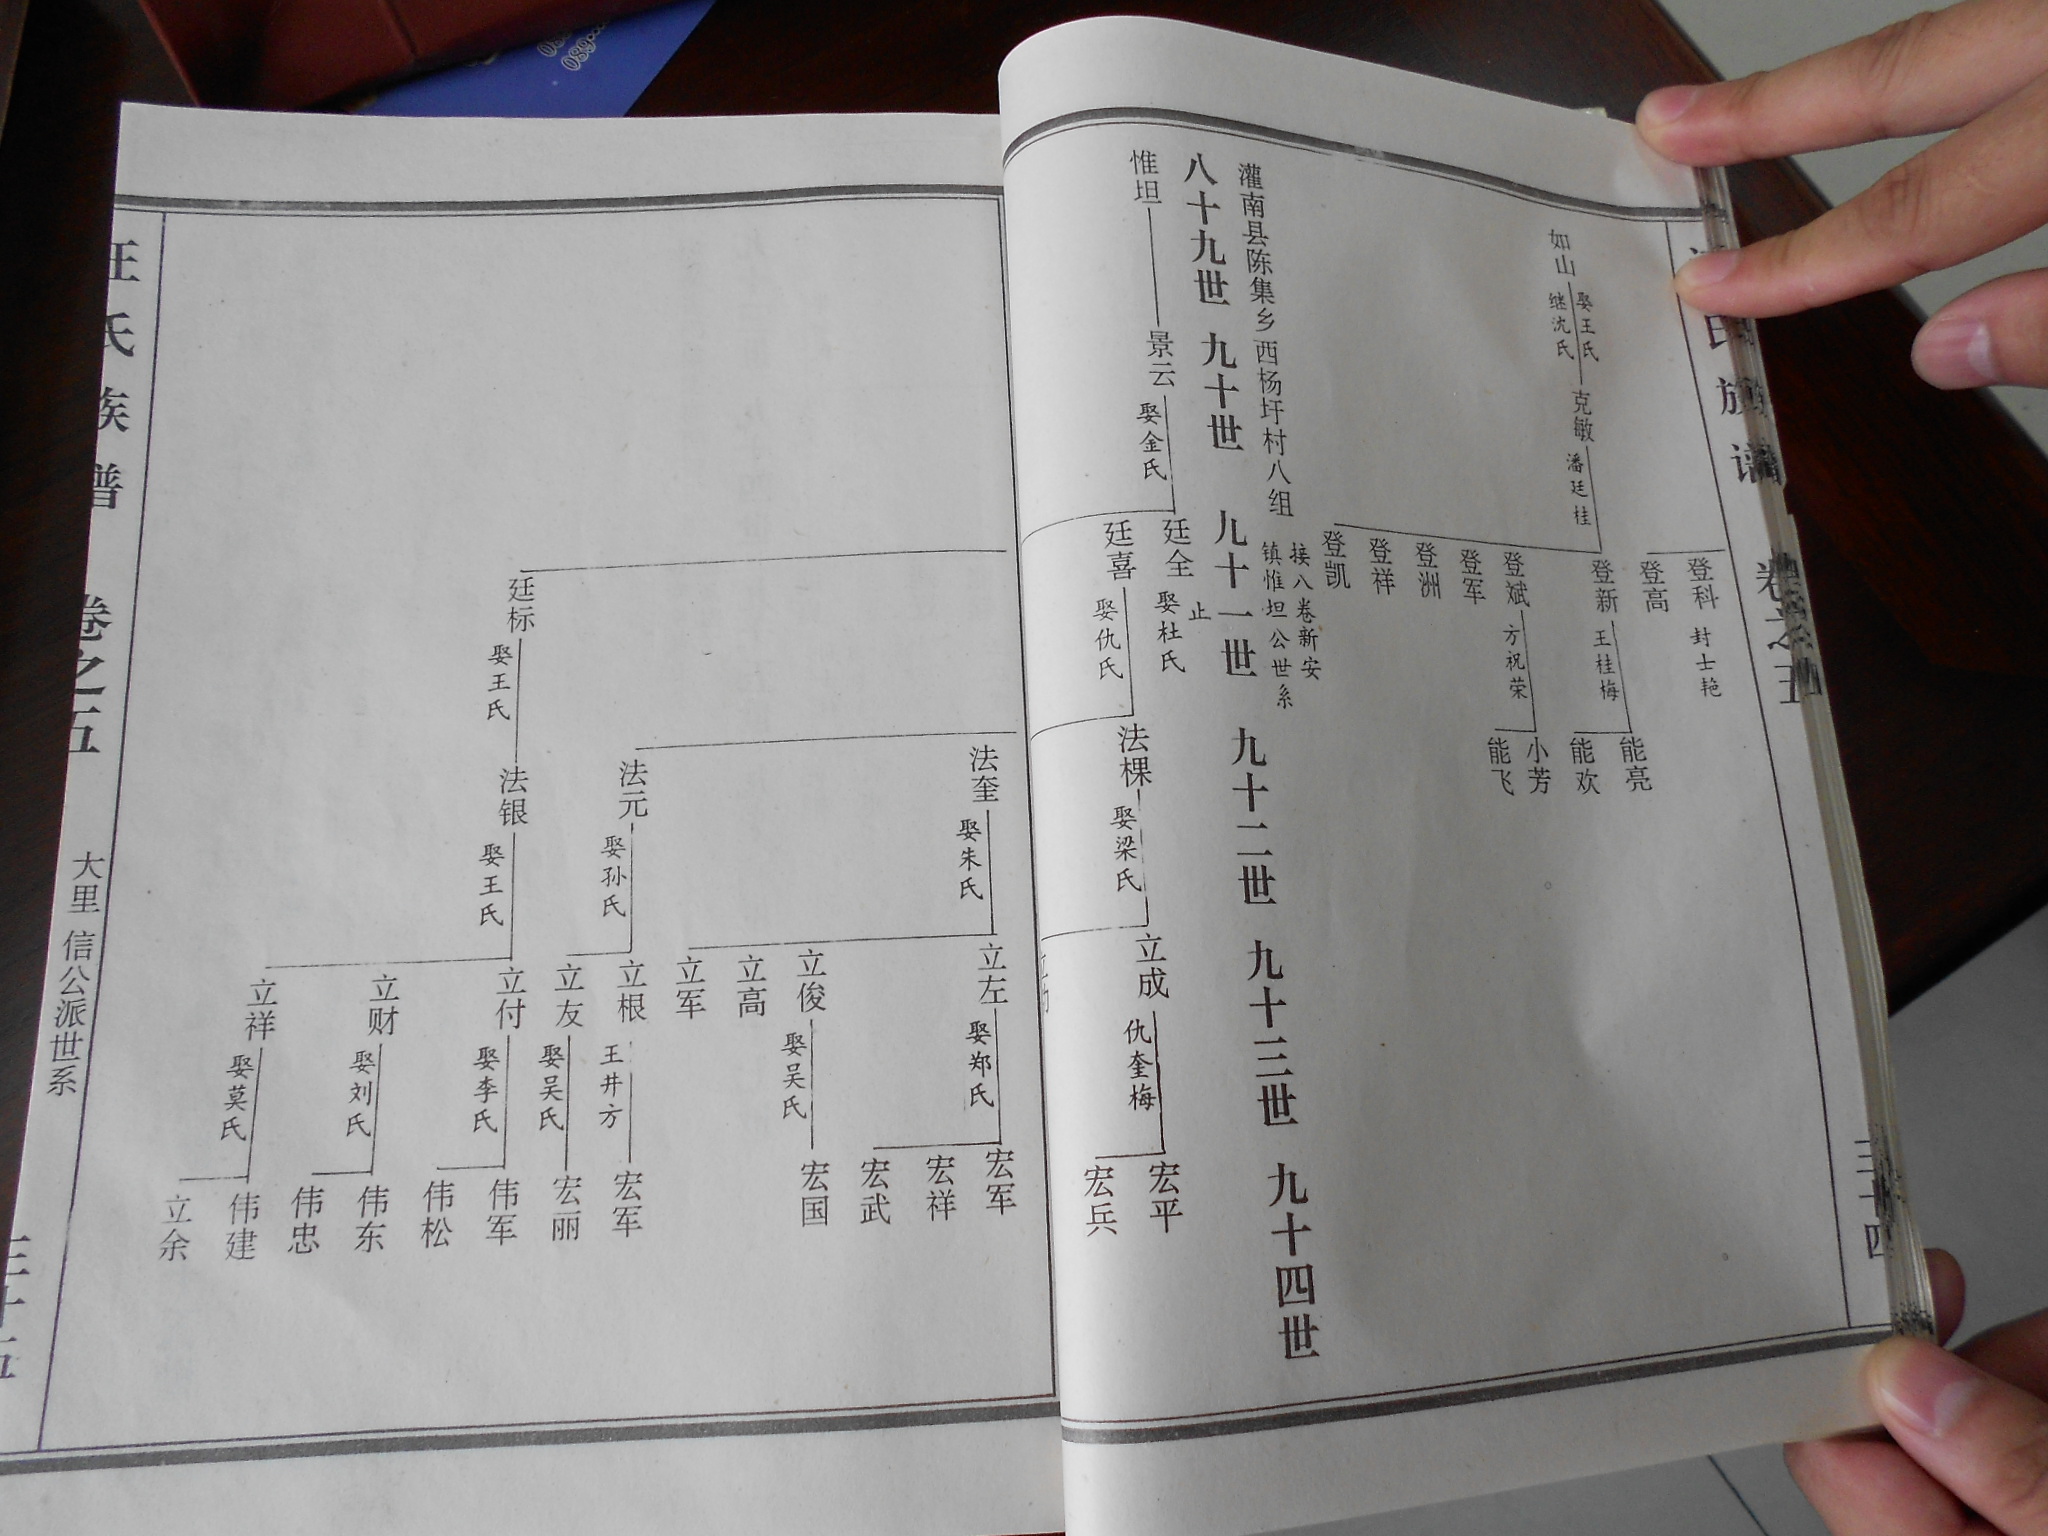 登科 封士艳
登高
如山 娶王氏 继沈氏 克敏 潘廷桂
登新 王桂梅 能亮
能欢
登斌 方祝荣 小芳
能飞
登军
登洲
登祥
登凯
灌南县陈集乡西杨圩村八组 接八卷新安
镇惟坦公世系
八十九世 九十世 九十一世 九十二世 九十三世 九十四世
惟坦 景云 娶金氏
廷全 娶杜氏 止
廷喜 娶仇氏 法棵 娶梁氏 立成 仇奎梅 宏平
宏兵
法奎 娶朱氏 立左 娶郑氏 宏军
宏祥
宏武
立俊 娶吴氏 宏国
立高
立军
法元 娶孙氏 立根 王井方 宏军
立友 娶吴氏 宏丽
廷标 娶王氏 法银 娶王氏 立付 娶李氏 伟军
伟松
立财 娶刘氏 伟东
伟忠
立祥 娶莫氏 伟建
立余
汪氏族谱 卷之五 大里 信公派世系 三十五